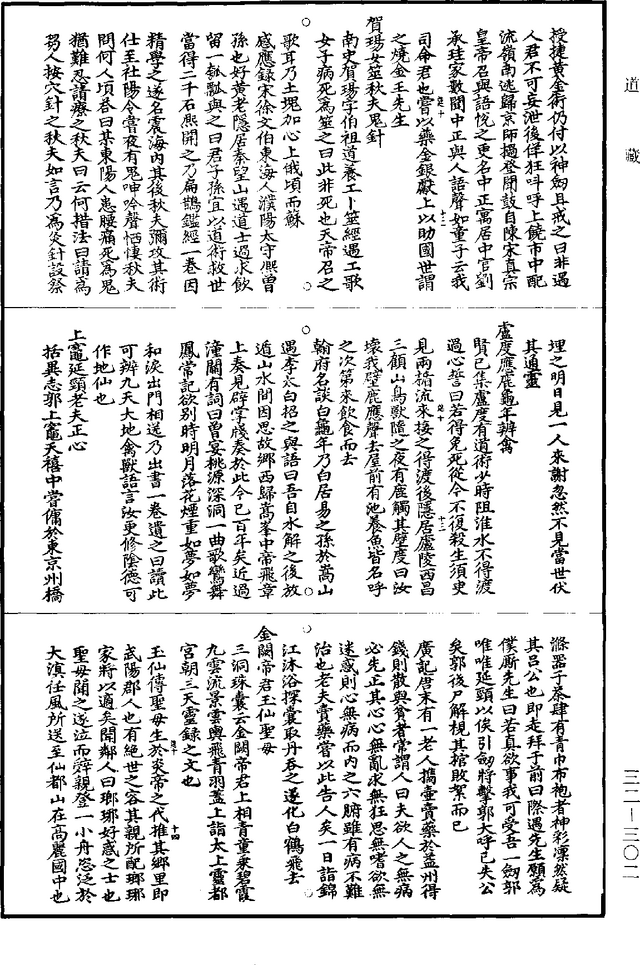 道藏
三二—三〇二
授捷黃金術仍付以神劒且戒之曰非遇
人君不可妄泄後佯狂叫呼上饒市中配
流嶺南逃歸京師撾登聞鼓自陳宋真宗
皇帝召與語悅之更名中正寓居中官劉
承珪家數聞中正與人語聲如童子云我
司命君也嘗以藥金銀獻上以助國世謂
之燒金王先生
賀瑒女筮秋夫鬼針
南史賀瑒字伯祖道養工卜筮經遇工歌
女子病死為筮之曰此非死也天帝召之
歌耳乃土塊加心上俄頃而蘇
感應錄宋徐文伯東海人濮陽太守熈曾
孫也好黃老隱居秦望山遇道士過求飲
留一瓠瓢與之曰君子孫宜以道術救世
當得二千石熈開之乃扁鵲鑑經一卷因
精學之遂名震海內其後秋夫彌攻其術
仕至社陽令嘗夜有鬼呻吟聲悽慘秋夫
問何人頃吞曰某東陽人患腰痛死為鬼
猶難忍請療之秋夫曰云何措法曰請為
芻人按穴針之秋夫如言乃為灸針設祭
埋之明日見一人來謝忽然不見當世伏
其通靈
盧度應鹿龜年辨禽
賢已集盧度有道術少時阻淮水不得渡
過心誓曰若得免死從今不復殺生須臾
見兩楯流來接之得渡後隱居盧陵西昌
三顧山鳥獸隨之夜有鹿觸其壁度曰汝
壞我壁鹿應聲去屋前有池養魚皆名呼
之次第來飲食而去
翰府名談白龜年乃白居易之孫於嵩山
遇李太白招之與語曰吾自水解之後放
遁山水間因思故鄉西歸嵩峯中帝飛章
上奏見辟掌牋奏於此今已百年矣近過
潼關有詞曰曾宴桃源深洞一曲歌鸞舞
鳳常記欲別時明月落花煙重如夢如夢
和淚出門相送乃出書一卷遺之曰讀此
可辨九天大地禽獸語言汝更修陰德可
作地仙也
上竈延頸老夫正心
括異志郭上竈天禧中嘗傭於東京州橋
滌器于茶肆有青巾布袍者神彩漂然疑
其呂公也即走拜于前曰際遇先生願為
僕厮先生曰若真欲事我可受吾一劒郭
唯唯延頸以俟引劒將擊郭大呼已失公
矣郭後尸解視其棺敗絮而已
廣記唐末有一老人攜壷賣藥於益州得
錢則散與貧者常謂人曰夫欲人之無病
必先正其心心無亂求無狂思無嗜欲無
迷惑則心無病而內之六腑雖有病不難
治也老夫賣藥嘗以此告人矣一日詣錦
江沐浴探囊取丹吞之遂化白鶴飛去
金闕帝君玉仙聖母
三洞珠囊云金闕帝君上相青童乘碧霞
九雲流景雲輿飛青羽蓋上詣太上靈都
宮朝三天靈錄之文也
玉仙傳聖母生於炎帝之代推其鄉里即
武陽郡人也有絕世之容其親所配瑯琊
家將以適矣聞鄰人曰瑯琊好惑之士也
聖母聞之遂泣而辤親登一小舟恣泛於
大滇任風所送至仙都山在高麗國中也